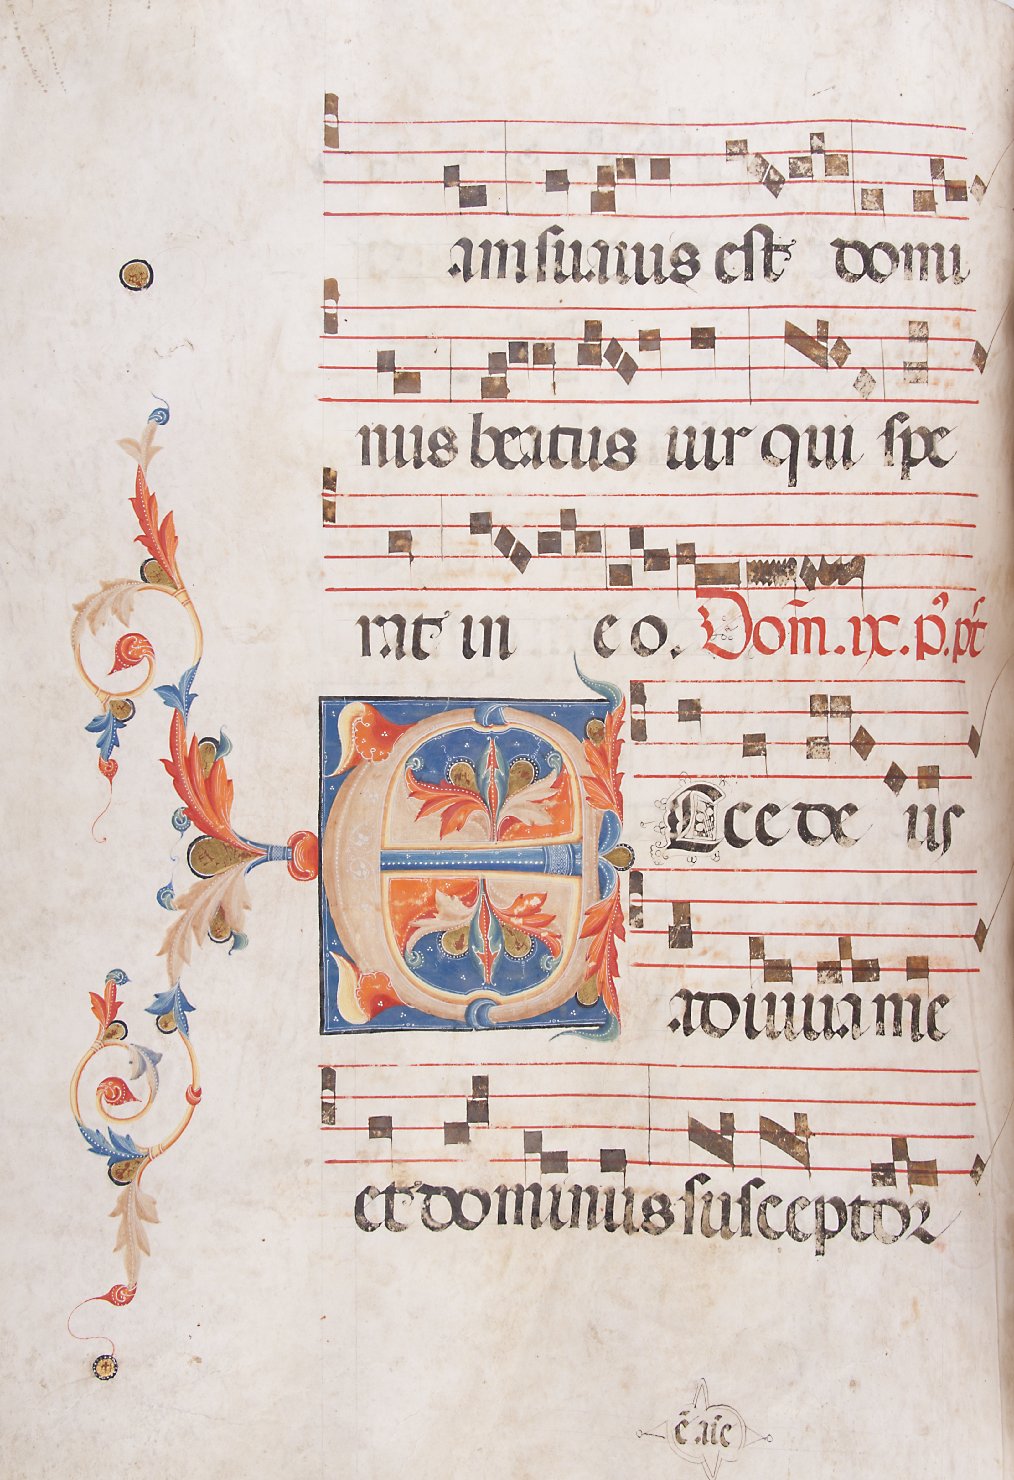 am suauis est domi
nus beatus uir qui spe
rat in eo. Dom̄. ix. p᾽. pt᾽
Ecce de us
adiuua me
et dominus susceptor
ē aīe